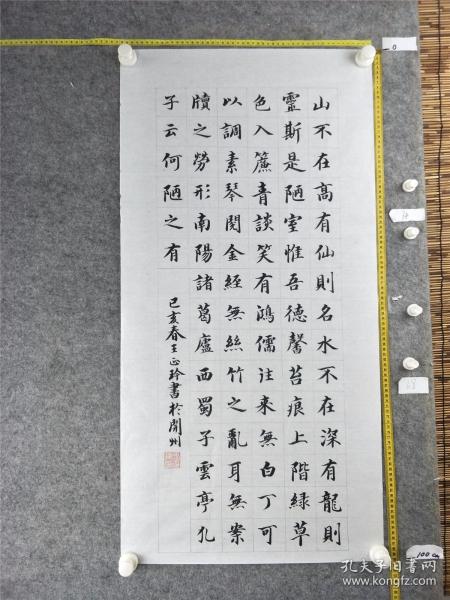 山不在高有仙則名水不在深有龍則
靈斯是陋室惟吾德馨苔痕上階綠草
色入簾青談笑有鴻儒往來無白丁可
以調素琴閱金經無絲竹之亂耳無案
牘之勞形南陽諸葛廬西蜀子雲亭孔
子云何陋之有
己亥春王正玲書於開州
0
100 cm
孔夫子旧书网
www.kongfz.com